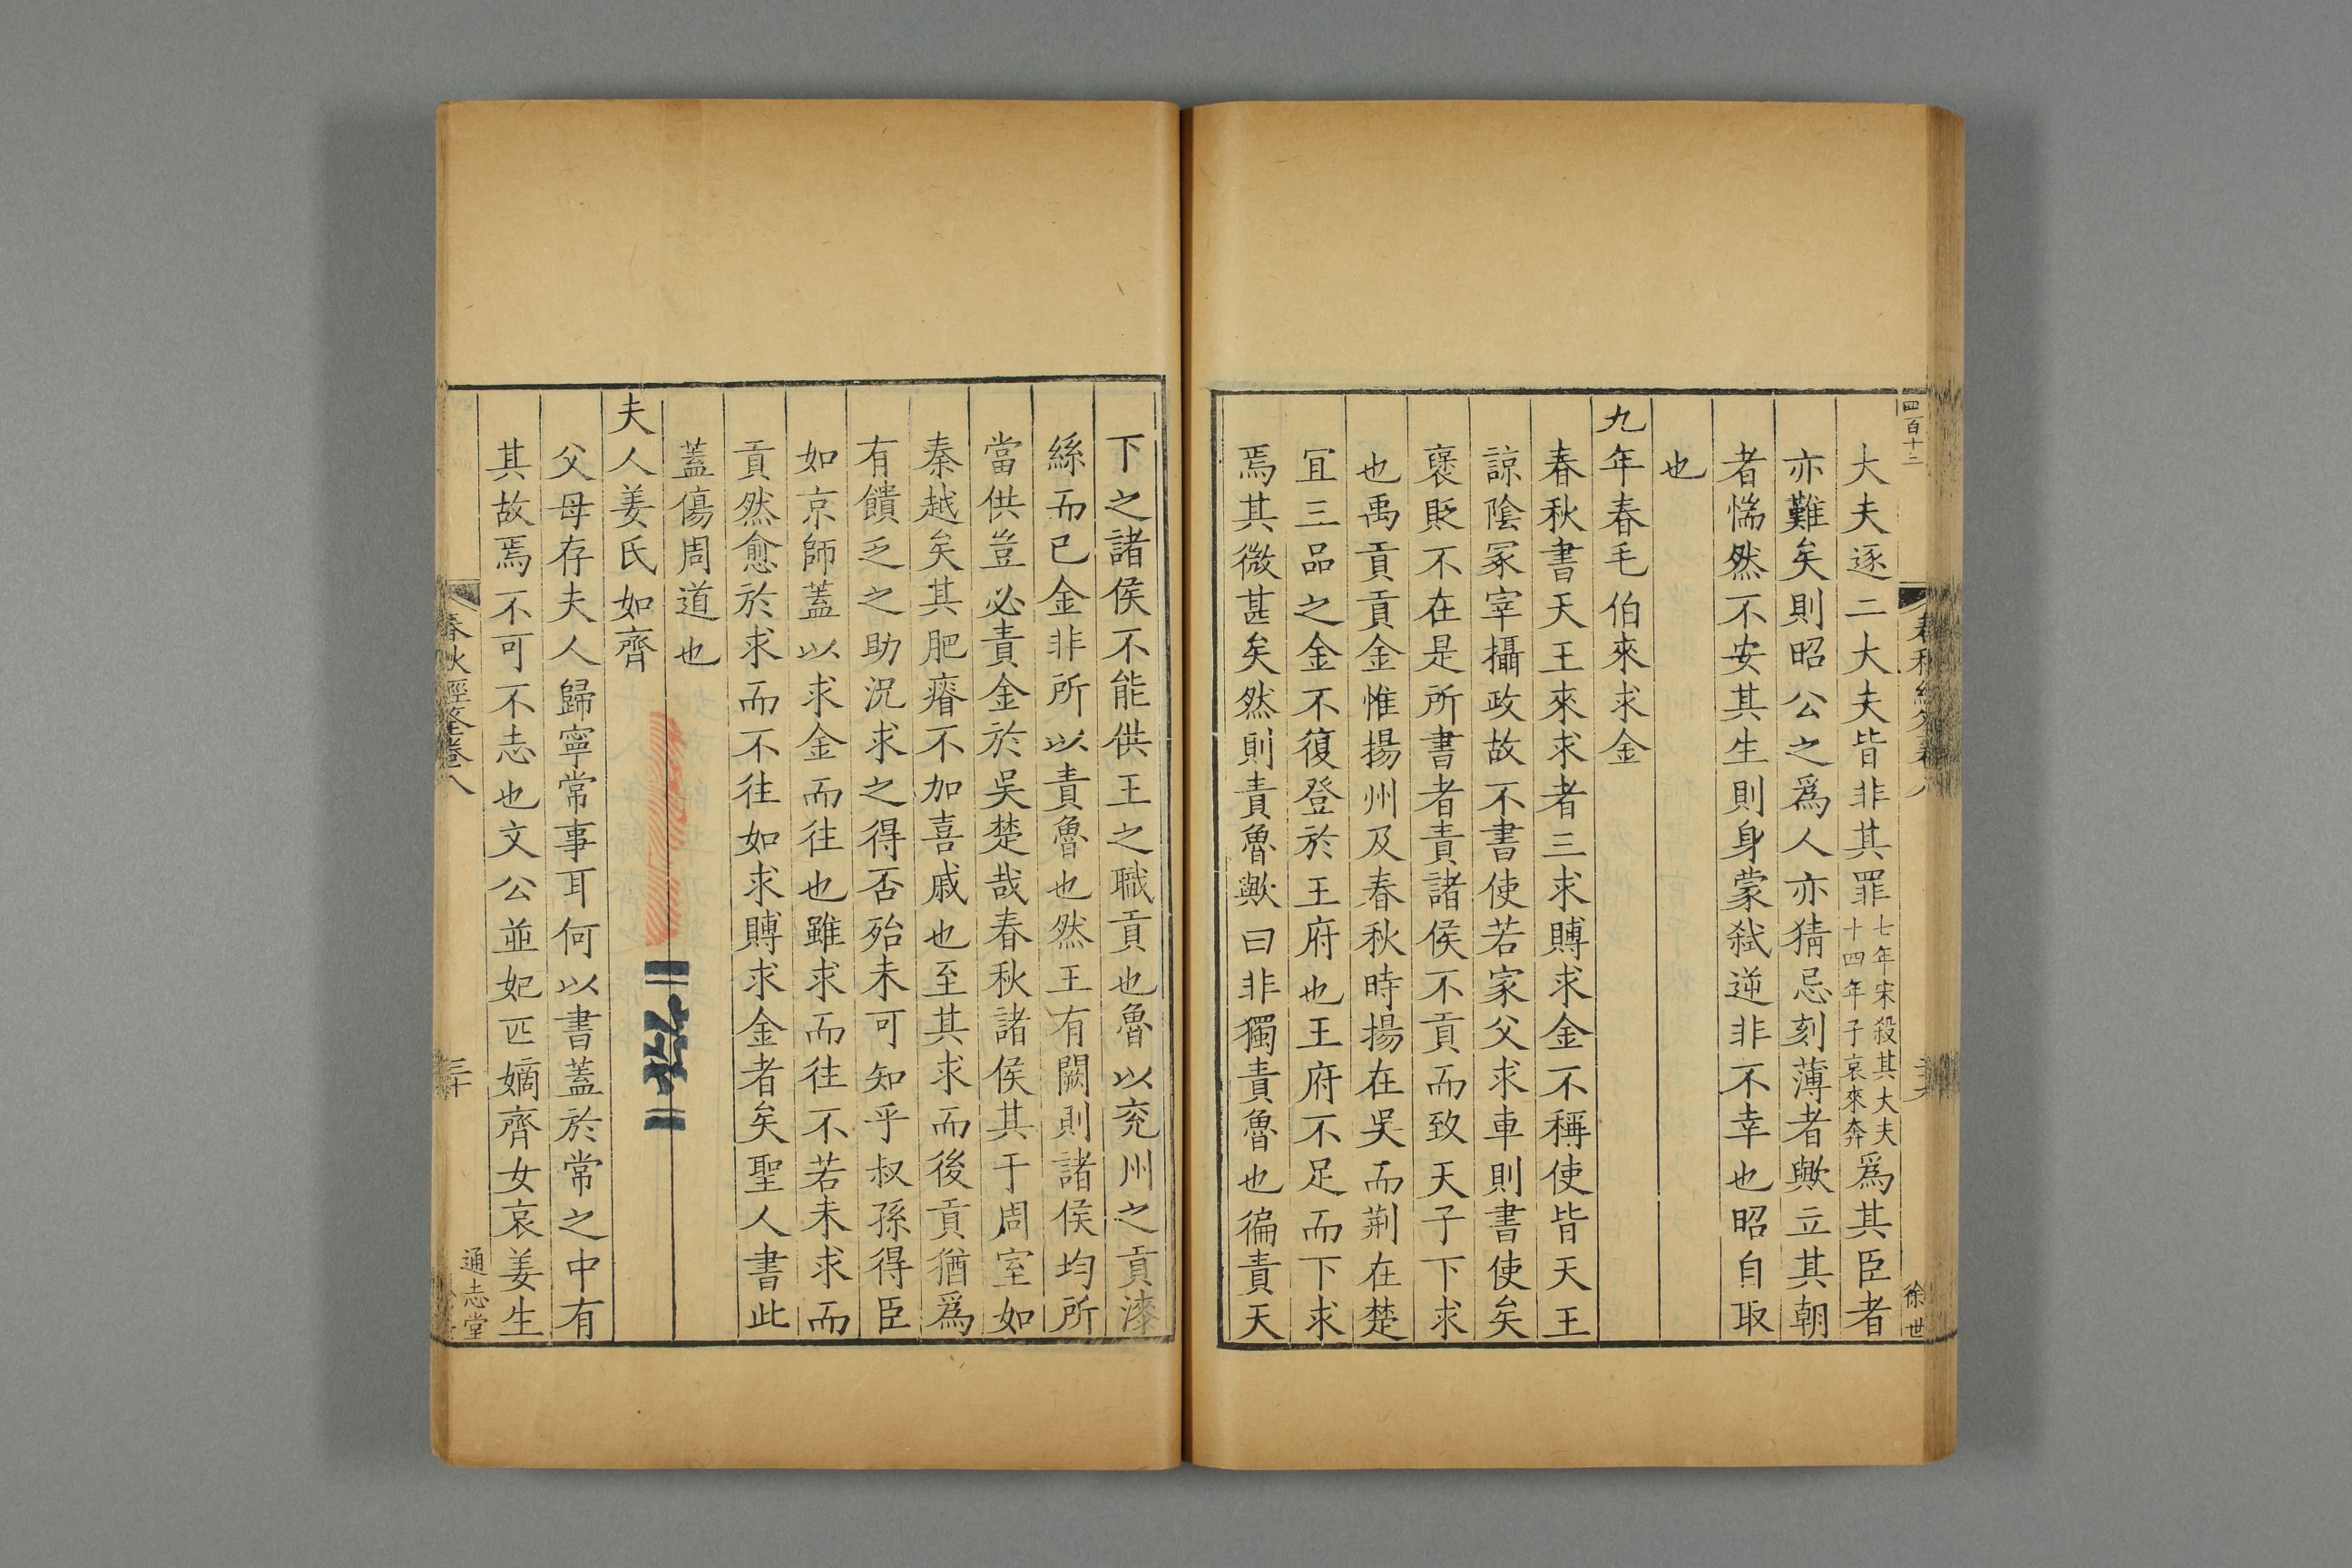 四百十二
大夫逐二大夫皆非其罪七年宋殺其大夫十四年子哀來奔爲其臣者
亦難矣則昭公之爲人亦猜忌刻薄者歟立其朝
者惴然不安其生則身蒙弑逆非不幸也昭自取
也
九年春毛伯來求金
春秋書天王來求者三求賻求金不稱使皆天王
諒隂冢宰攝政故不書使若家父求車則書使矣
襃貶不在是所書者責諸侯不貢而致天子下求
也禹貢貢金惟揚州及春秋時揚在吳而荆在楚
宜三品之金不復登於王府也王府不足而下求
焉其微甚矣然則責魯歟曰非獨責魯也徧責天
徐世
下之諸侯不能供王之職貢也魯以兖州之貢漆
絲而已金非所以責魯也然王有闕則諸侯均所
當供豈必責金於吳楚哉春秋諸侯其于周室如
秦越矣其肥瘠不加喜戚也至其求而後貢猶爲
有饋乏之助況求之得否殆未可知乎叔孫得臣
如京師蓋以求金而往也雖求而往不若未求而
貢然愈於求而不往如求賻求金者矣聖人書此
蓋傷周道也
夫人姜氏如齊
父母存夫人歸寧常事耳何以書蓋於常之中有
其故焉不可不志也文公並妃匹嫡齊女哀姜生
春秋經筌卷八
三十
通志堂